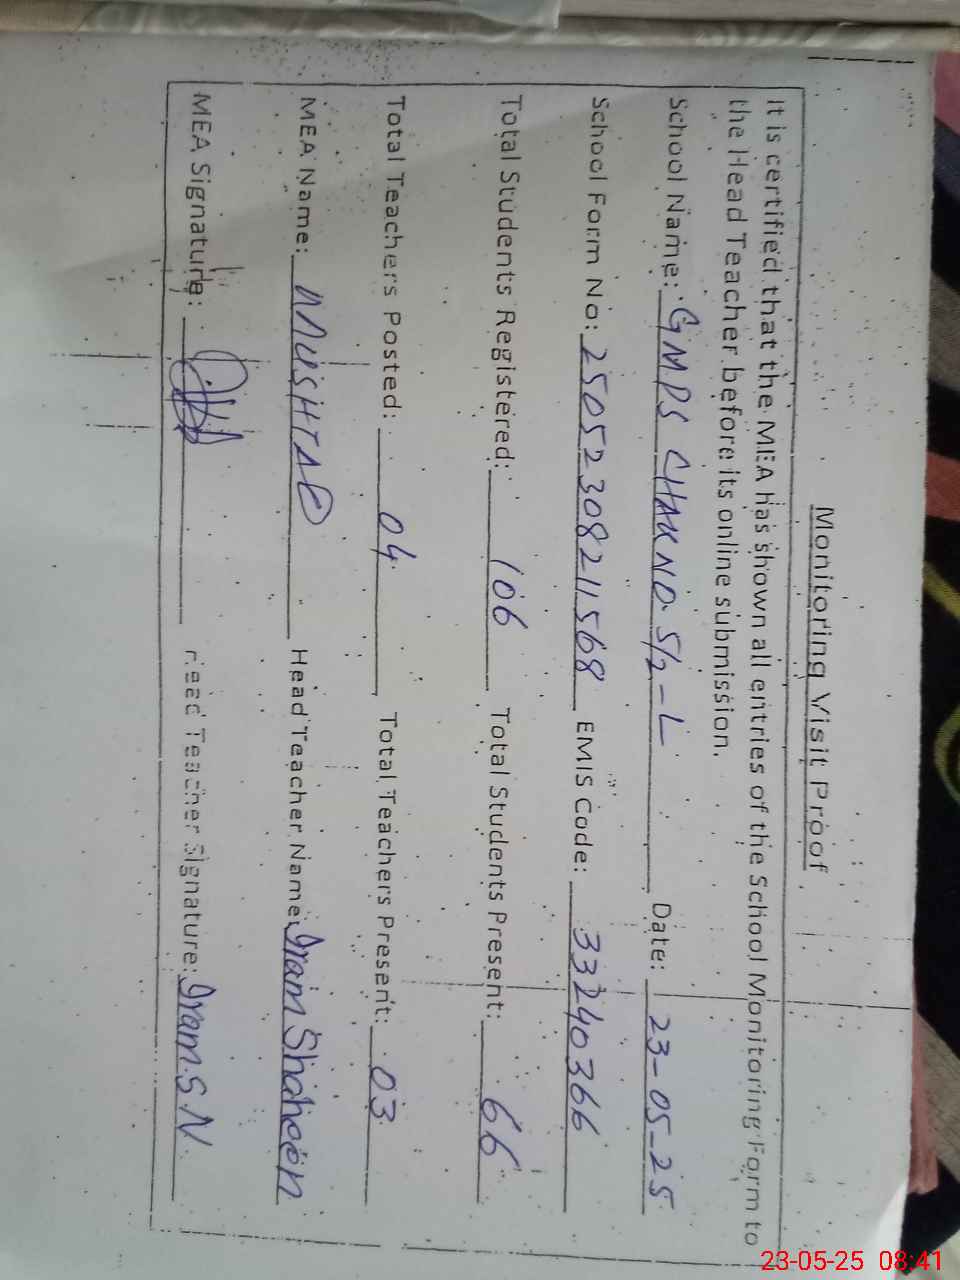 Monitoring Visit Proof
It is certified that the MEA has shown all entries of the School Monitoring Form to
the Head Teacher before its online submission.
School Name: GMPS CHAK NO. 5/2-L Date: 23-05-25
School Form No: 25052308211568 EMIS Code: 33240366
Total Students Registered: 106 Total Students Present: 66
Total Teachers Posted: 04 Total Teachers Present: 03
MEA Name: MUSHTAQ Head Teacher Name: Iram Shaheen
MEA Signature: Head Teacher Signature: Iram.S N
23-05-25 08:41